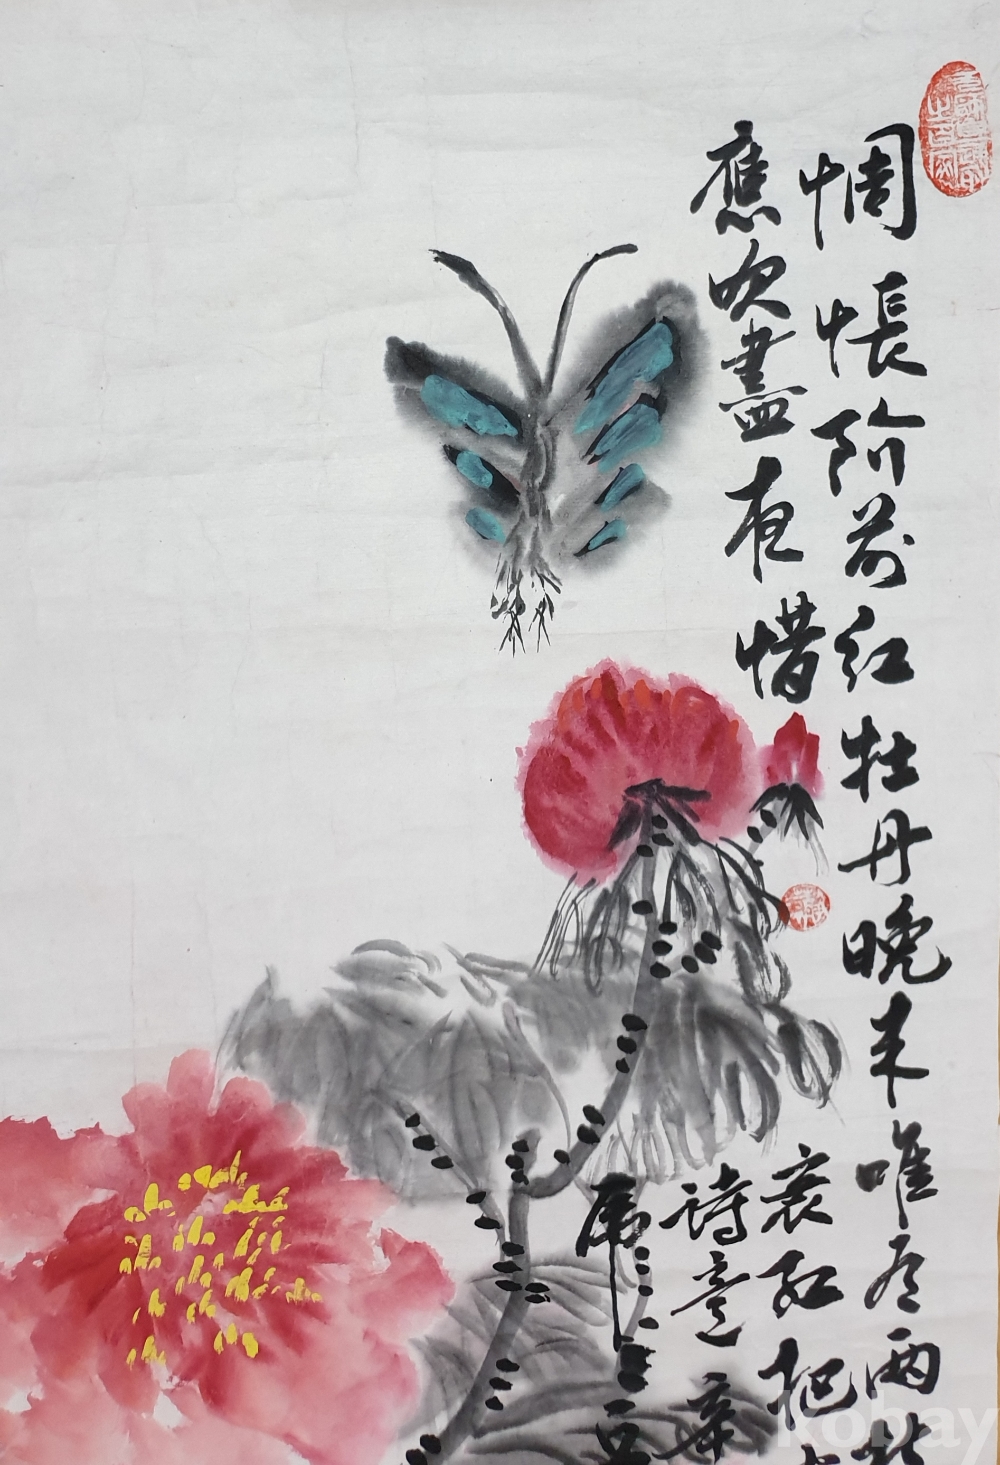 惆悵阶前红牡丹晚来唯有两枝
應吹盡夜惜
衰红把火
诗意辛
虎
kobay